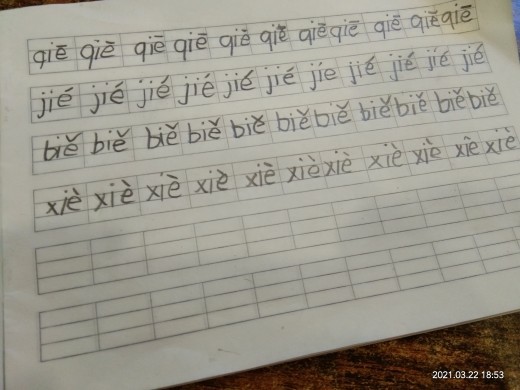 qiē qiē qiē qiē qiē qiē qiē qiē qiē qiē qiē
jié jié jié jié jié jié jíe jié jié jié jié
biě biě biě biě biě biě biě biě biě biě biě
xiè xiè xiè xiè xiè xiè xiè xiè xiè xiè xiè
2021.03.22 18:53